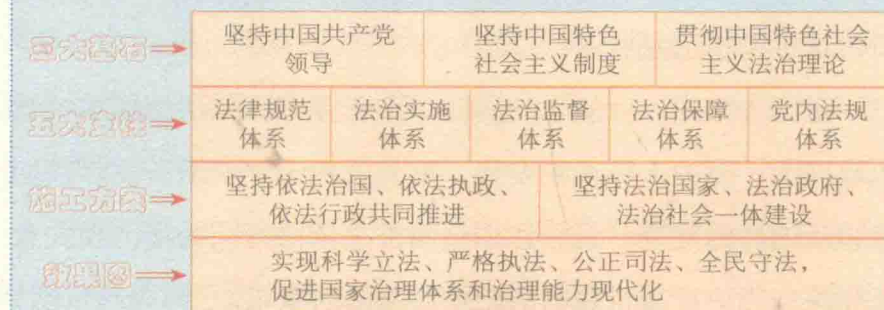 三大基石
坚持中国共产党
领导
坚持中国特色
社会主义制度
贯彻中国特色社会
主义法治理论
五大支柱
法律规范
体系
法治实施
体系
法治监督
体系
法治保障
体系
党内法规
体系
施工方案
坚持依法治国、依法执政、
依法行政共同推进
坚持法治国家、法治政府、
法治社会一体建设
效果图
实现科学立法、严格执法、公正司法、全民守法,
促进国家治理体系和治理能力现代化